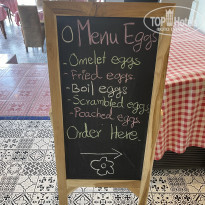 Menu Eggs
- Omelet eggs
- Fried eggs.
- Boil eggs
- Scrambled eggs
- Poached eggs.
Order Here
TOP HOTELS